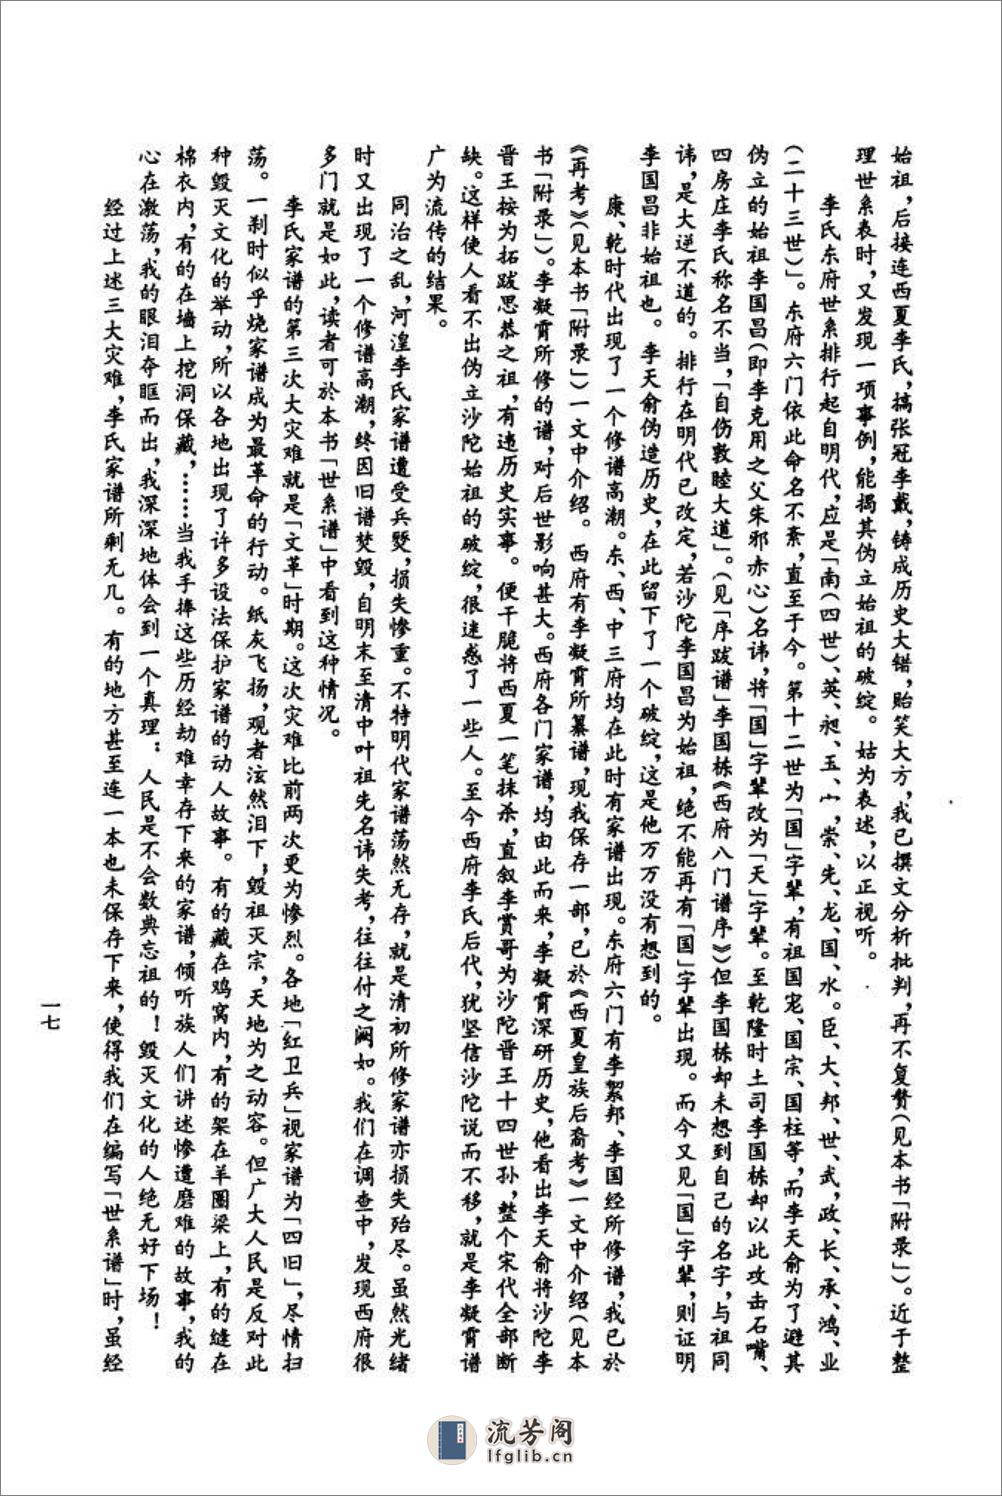 始祖，后接连西夏李氏，搞张冠李戴，铸成历史大错，贻笑大方，我已撰文分析批判，再不复赘（见本书「附录」）。近于整
理世系表时，又发现一项事例，能揭其伪立始祖的破绽。姑为表述，以正视听。
李氏东府世系排行起自明代，应是「南（四世）、英、昶、玉、宀、崇、先、龙、国、水。臣、大、邦、世、武，政、长、承、鸿、业
（二十三世）」。东府六门依此命名不紊，直至于今。第十二世为「国」字辈，有祖国宠、国宗、国柱等，而李天俞为了避其
伪立的始祖李国昌（即李克用之父朱邪赤心）名讳，将「国」字辈改为「天」字辈。至乾隆时土司李国栋却以此攻击石嘴、
四房庄李氏称名不当，「自伤敦睦大道」。（见「序跋谱」李国栋《西府八门谱序》）但李国栋却未想到自己的名字，与祖同
讳，是大逆不道的。排行在明代已改定，若沙陀李国昌为始祖，绝不能再有「国」字辈出现。而今又见「国」字辈，则证明
李国昌非始祖也。李天俞伪造历史，在此留下了一个破绽，这是他万万没有想到的。
康、乾时代出现了一个修谱高潮。东、西、中三府均在此时有家谱出现。东府六门有李絜邦、李国经所修谱，我已於
《再考》（见本书「附录」）一文中介绍。西府有李凝霄所纂谱，现我保存一部，已於《西夏皇族后裔考》一文中介绍（见本
书「附录」）。李凝霄所修的谱，对后世影响甚大。西府各门家谱，均由此而来，李凝霄深研历史，他看出李天俞将沙陀李
晋王按为拓跋思恭之祖，有违历史实事。便干脆将西夏一笔抹杀，直叙李赏哥为沙陀晋王十四世孙，整个宋代全部断
缺。这样使人看不出伪立沙陀始祖的破绽，很迷惑了一些人。至今西府李氏后代，犹坚信沙陀说而不移，就是李凝霄谱
广为流传的结果。
同治之乱，河湟李氏家谱遭受兵燹，损失惨重。不特明代家谱荡然无存，就是清初所修家谱亦损失殆尽。虽然光绪
时又出现了一个修谱高潮，终因旧谱焚毁，自明末至清中叶祖先名讳失考，往往付之阙如。我们在调查中，发现西府很
多门就是如此，读者可於本书「世系谱」中看到这种情况。
李氏家谱的第三次大灾难就是「文革」时期。这次灾难比前两次更为惨烈。各地「红卫兵」视家谱为「四旧」，尽情扫
荡。一刹时似乎烧家谱成为最革命的行动。纸灰飞扬，观者泫然泪下；毁祖灭宗，天地为之动容。但广大人民是反对此
种毁灭文化的举动，所以各地出现了许多设法保护家谱的动人故事。有的藏在鸡窝内，有的架在羊圈梁上，有的缝在
棉衣内，有的在墙上挖洞保藏，……当我手捧这些历经劫难幸存下来的家谱，倾听族人们讲述惨遭磨难的故事，我的
心在激荡，我的眼泪夺眶而出，我深深地体会到一个真理：人民是不会数典忘祖的！毁灭文化的人绝无好下场！
经过上述三大灾难，李氏家谱所剩无几。有的地方甚至连一本也未保存下来，使得我们在编写「世系谱」时，虽经
一七
流芳阁
lfglib.cn